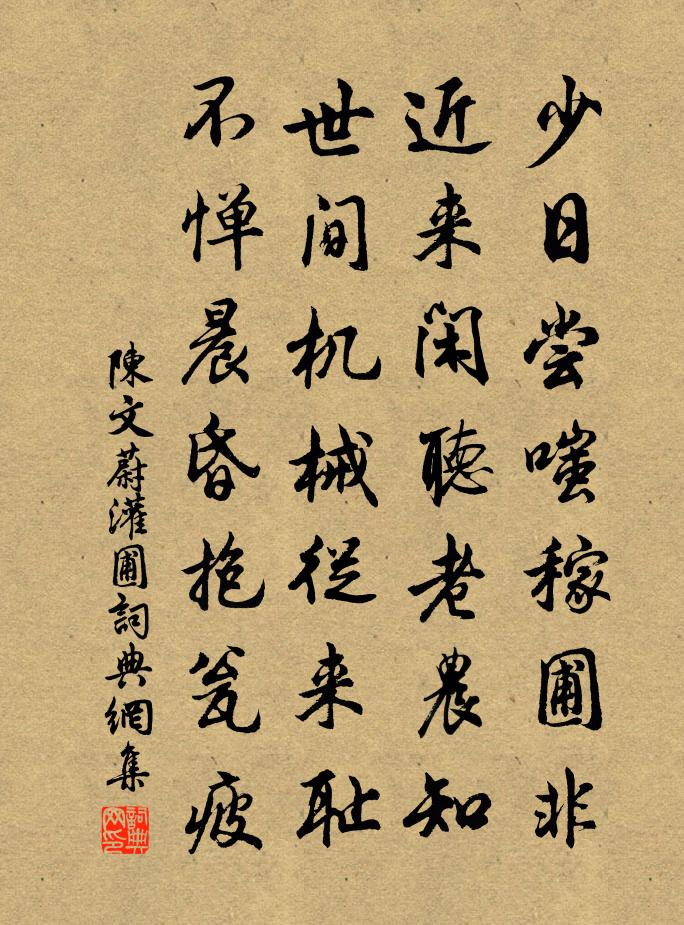 少日尝嗤稼圃非
近来闲聽老農知
世间机械從来耻
不惮晨昏抱瓮疲
陳文蔚灌圃詞典網集
詞典網印